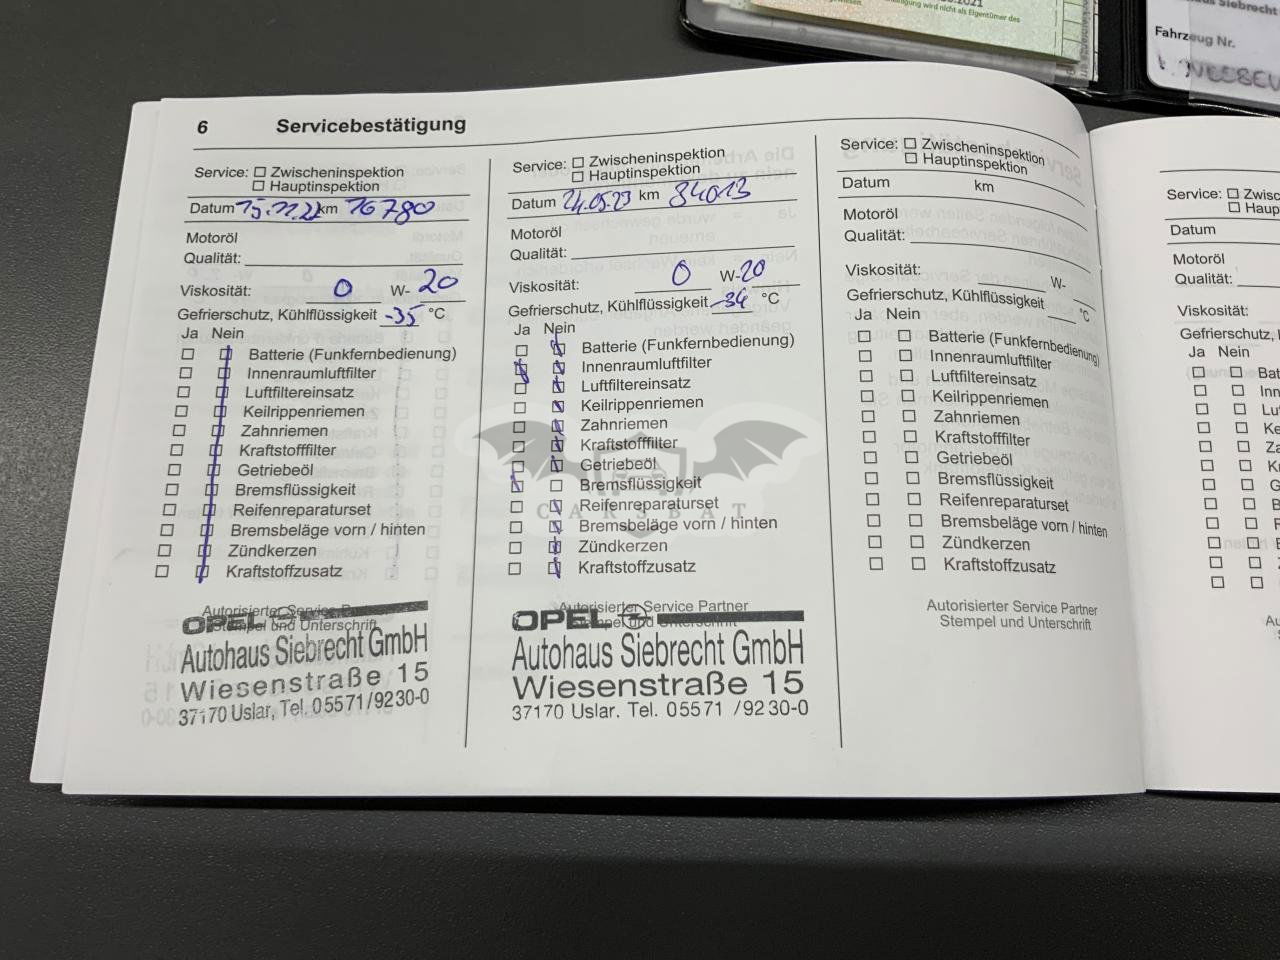 .2021
igung wird nicht als Eigentümer des
Siebrecht
Fahrzeug Nr.
6 Servicebestätigung
Service: Zwischeninspektion
Hauptinspektion
Datum 15.11.22 km 16780
Motoröl
Qualität:
Viskosität: 0 W- 20
Gefrierschutz, Kühlflüssigkeit -35 °C
Ja Nein
Batterie (Funkfernbedienung)
Innenraumluftfilter
Luftfiltereinsatz
Keilrippenriemen
Zahnriemen
Kraftstofffilter
Getriebeöl
Bremsflüssigkeit
Reifenreparaturset
Bremsbeläge vorn / hinten
Zündkerzen
Kraftstoffzusatz
Autorisierter Service Partner
Stempel und Unterschrift
OPEL
Autohaus Siebrecht GmbH
Wiesenstraße 15
37170 Uslar, Tel. 05571/9230-0
Service: Zwischeninspektion
Hauptinspektion
Datum 24.05.23 km 34013
Motoröl
Qualität:
Viskosität: 0 W- 20
Gefrierschutz, Kühlflüssigkeit -34 °C
Ja Nein
Batterie (Funkfernbedienung)
Innenraumluftfilter
Luftfiltereinsatz
Keilrippenriemen
Zahnriemen
Kraftstofffilter
Getriebeöl
Bremsflüssigkeit
Reifenreparaturset
Bremsbeläge vorn / hinten
Zündkerzen
Kraftstoffzusatz
CARSBAT
Autorisierter Service Partner
Stempel und Unterschrift
OPEL
Autohaus Siebrecht GmbH
Wiesenstraße 15
37170 Uslar. Tel. 05571 /9230-0
Service: Zwischeninspektion
Hauptinspektion
Datum km
Motoröl
Qualität:
Viskosität: W-
Gefrierschutz, Kühlflüssigkeit °C
Ja Nein
Batterie (Funkfernbedienung)
Innenraumluftfilter
Luftfiltereinsatz
Keilrippenriemen
Zahnriemen
Kraftstofffilter
Getriebeöl
Bremsflüssigkeit
Reifenreparaturset
Bremsbeläge vorn / hinten
Zündkerzen
Kraftstoffzusatz
Autorisierter Service Partner
Stempel und Unterschrift
Service: Zwisc
Haup
Datum
Motoröl
Qualität:
Viskosität:
Gefrierschutz,
Ja Nein
Bat
Inn
Lu
Ke
Za
Kr
G
B
R